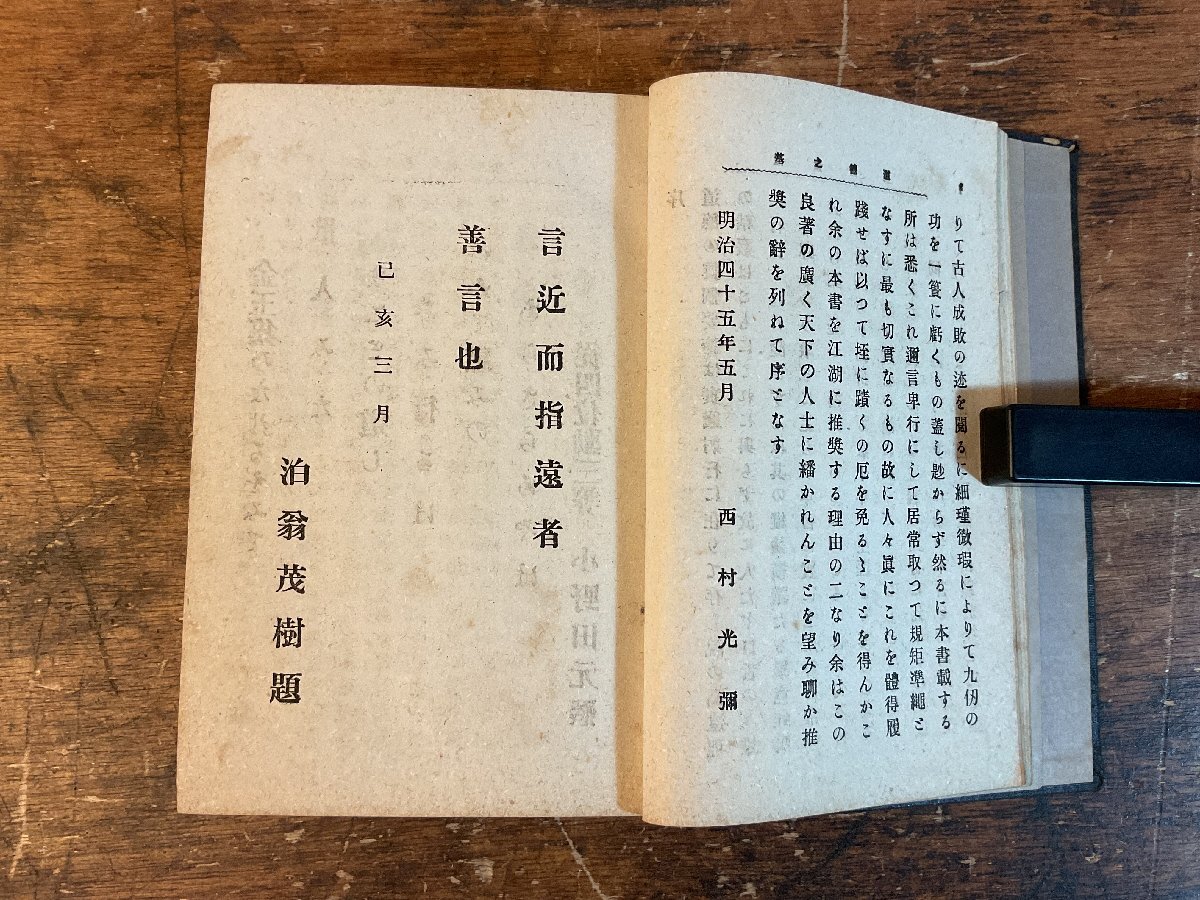 りて古人成敗の迹を閲るに細瑾微瑕によりて九仞の
功を一簣に虧くもの蓋し尠からず然るに本書載する
所は悉くこれ邇言卑行にして居常取つて規矩準繩と
なすに最も切實なるもの故に人々眞にこれを體得履
踐せば以つて垤に蹟くの厄を免るゝことを得んかこ
れ余の本書を江湖に推奬する理由の二なり余はこの
良著の廣く天下の人士に繙かれんことを望み聊か推
奬の辭を列ねて序となす
明治四十五年五月 西村光彌
言近而指遠者
善言也
己亥三月
泊翁茂樹題